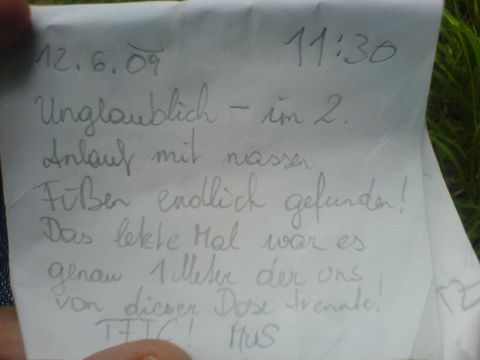 12.6.09 11:30
Unglaublich - im 2.
Anlauf mit nassen
Füßen endlich gefunden!
Das letzte Mal war es
genau 1 Meter der uns
von dieser Dose trennte!
TFTC! MuS